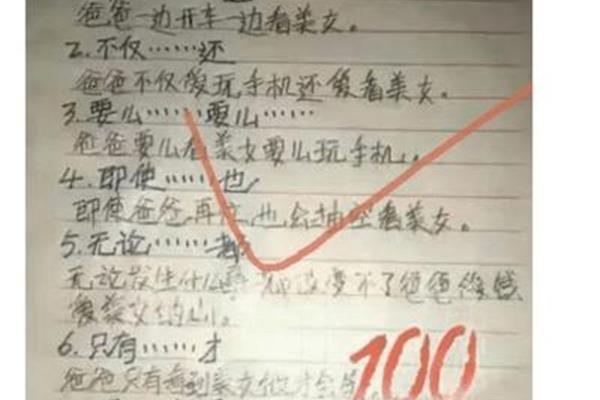 爸爸一边开车一边看美女。
2.不仅……还
爸爸不仅爱玩手机还爱看美女。
3.要么……要么……
爸爸要么看美女要么玩手机。
4.即使……也
即使爸爸再忙,也会抽空看美女。
5.无论……都
无论发生什么事都改变不了爸爸
爱美女的心。
6.只有……才
爸爸只有看到美女他才会
100